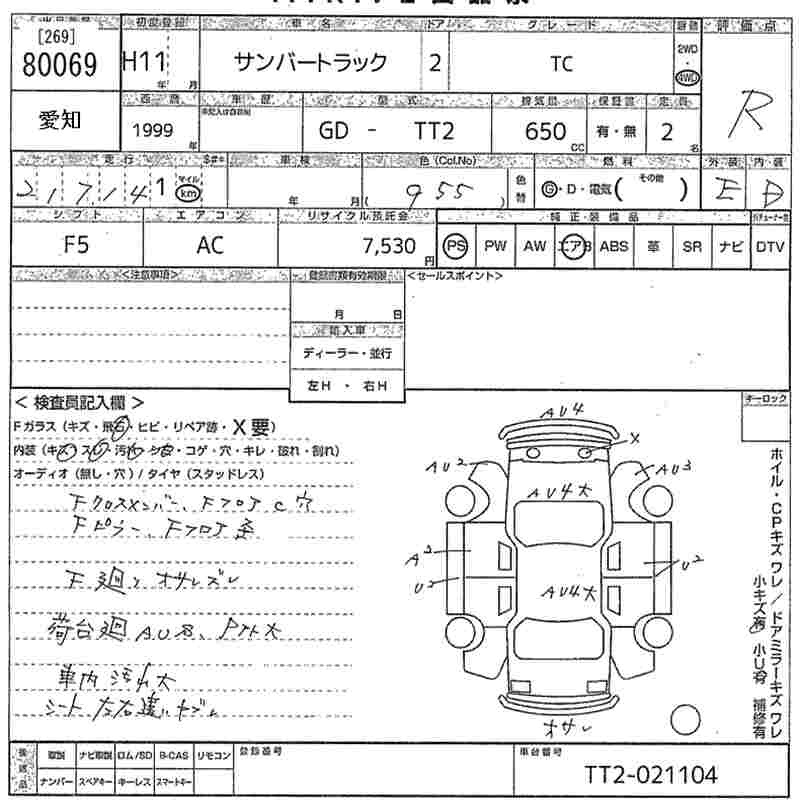 [269]
80069
初度登録
H11
年 月
車名
サンバートラック
ドア
2
グレード
TC
2WD
・
4WD
評価点
R
愛知
西暦
1999
年
車歴
型式
GD - TT2
排気量
650
CC
保証書
有・無
定員
2
名
走行
21,714
1
マイル
km
車検
年 月
色(Col.No)
( 955 )
色替
燃料
G・D・電気( その他 )
外装
E
内装
D
シフト
F5
エアコン
AC
リサイクル預託金
7,530
円
純正装備品
PS
PW
AW
エアB
ABS
革
SR
ナビ
DTV
<注意事項>
登録書類有効期限
月 日
輸入車
ディーラー・並行
左H ・ 右H
<セールスポイント>
キーロック
< 検査員記入欄 >
Fガラス(キズ・飛石・ヒビ・リペア跡・X要)
内装(キズ・スレ・汚れ・シミ・コゲ・穴・キレ・破れ・割れ)
オーディオ(無し・穴)/タイヤ(スタッドレス)
FクロスメンバーFフロアC穴
Fピラー、Fフロア歪
F廻りオサレズレ
荷台廻AUB、
車内汚れ大
シート左右違い
AU4
X
AU2
AU3
AU4大
A3
U2
U2
AU4大
オサレ
ホイル・CPキズワレ/ドアミラーキズワレ
小キズ有 小U有 補修有
後送品
取説
ナビ取説
ロム/SD
B-CAS
リモコン
ナンバー
スペアキー
キーレス
スマートキー
登録番号
車台番号
TT2-021104